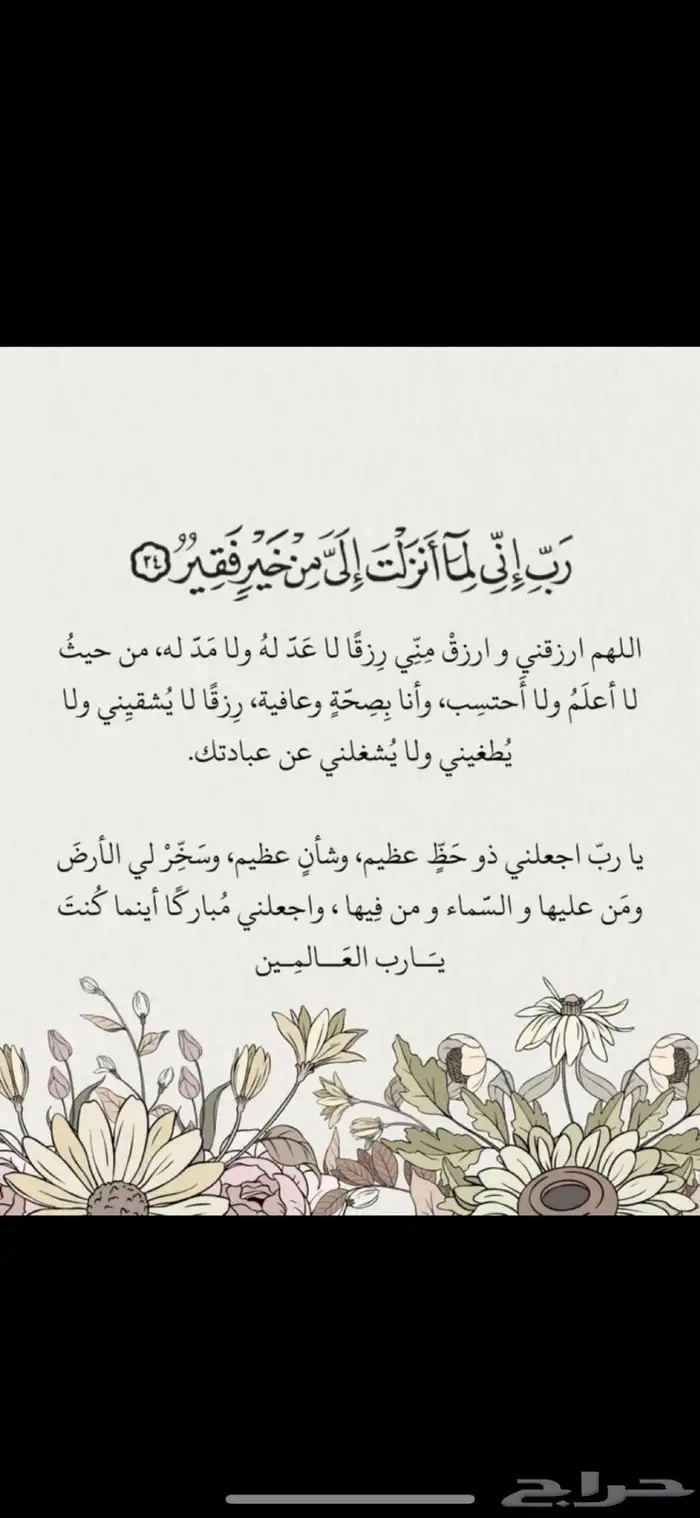 رَبِّ إِنِّي لِمَآ أَنزَلْتَ إِلَىَّ مِنْ خَيْرٍ فَقِيرٌ ٢٤
اللهم ارزقني و ارزقْ مِنِّي رِزقًا لا عَدّ لهُ ولا مَدّ له، من حيثُ
لا أعلَمُ ولا أَحتسِب، وأنا بِصِحّةٍ وعافية، رِزقًا لا يُشقيِني ولا
يُطغيني ولا يُشغلني عن عبادتك.
يا ربّ اجعلني ذو حَظٍّ عظيم، وشأنٍ عظيم، وسَخِّرْ لي الأرضَ
ومَن عليها و السّماء و من فِيها ، واجعلني مُباركًا أينما كُنتَ
يَــارب العَــالمِـين
حراج